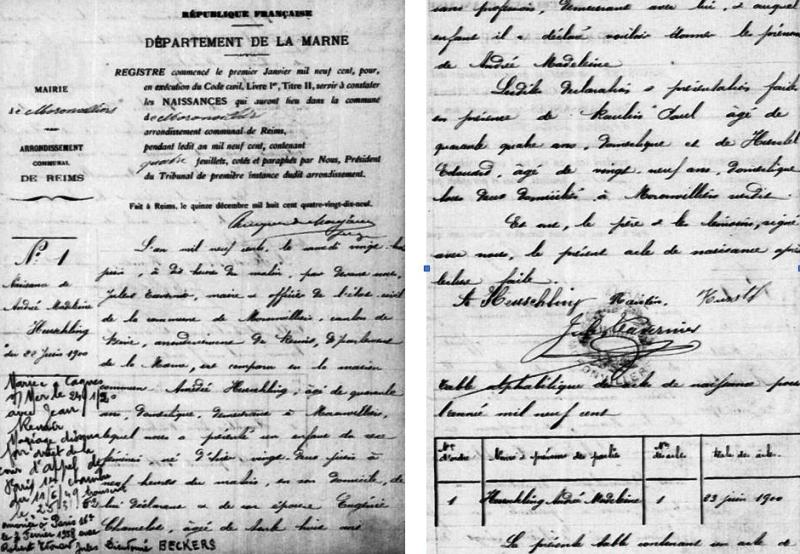 RÉPUBLIQUE FRANÇAISE
DÉPARTEMENT DE LA MARNE
MAIRIE
de Moronvilliers
ARRONDISSEMENT
COMMUNAL
DE REIMS
REGISTRE commencé le premier Janvier mil neuf cent, pour,
en exécution du Code civil, Livre Ier, Titre II, servir à constater
les NAISSANCES qui auront lieu dans la commune
de Moronvilliers
arrondissement communal de Reims,
pendant ledit an mil neuf cent, contenant
quatre feuillets, cotés et paraphés par Nous, Président
du Tribunal de première instance dudit arrondissement.
Fait à Reims, le quinze décembre mil huit cent quatre-vingt-dix-neuf.
No 1
Naissance de
Andrée Madeleine
Heuschling
du 22 Juin 1900
L'an mil neuf cent, le samedi vingt trois
juin, à dix heures du matin, par devant nous,
Jules, maire et officier de l'état civil
de la commune de Moronvilliers, canton de
Beine, arrondissement de Reims, département
de la Marne, est comparu en la maison
commune Amédée Heuschling, âgé de quarante
ans, domestique, demeurant à Moronvilliers,
lequel nous a présenté un enfant du sexe
féminin, né d'hier vingt deux juin à
neuf heures du matin, en son domicile, de
lui déclarant et de son épouse Eugénie
âgée de trente huit ans
Mariée à Cagnes
s/ Mer le 24/1/20
avec Jean
Renoir
Mariage dissous
par arrêt de la
cour d'Appel de
Paris 1ère chambre
du 11/6/49
le 7 Janvier 1958 avec
Robert Jules Dieudonné BECKERS
sans profession, demeurant avec lui, et auquel
enfant il a déclaré vouloir donner les prénoms
de Andrée Madeleine
Lesdites déclaration et présentation faites
en présence de Paul âgé de
quarante quatre ans, domestique et de Heuschling
Edouard, âgé de vingt neuf ans, domestique
tous deux domiciliés à Moronvilliers susdit.
Et ont, le père et les témoins, signé
avec nous, le présent acte de naissance après
lecture faite.
A Heuschling
Table alphabétique des actes de naissance pour
l'année mil neuf cent
Nos d'ordre Noms et prénoms des parties Nos des actes Date des actes
1 Heuschling Andrée Madeleine 1 23 juin 1900
La présente table contenant un acte de